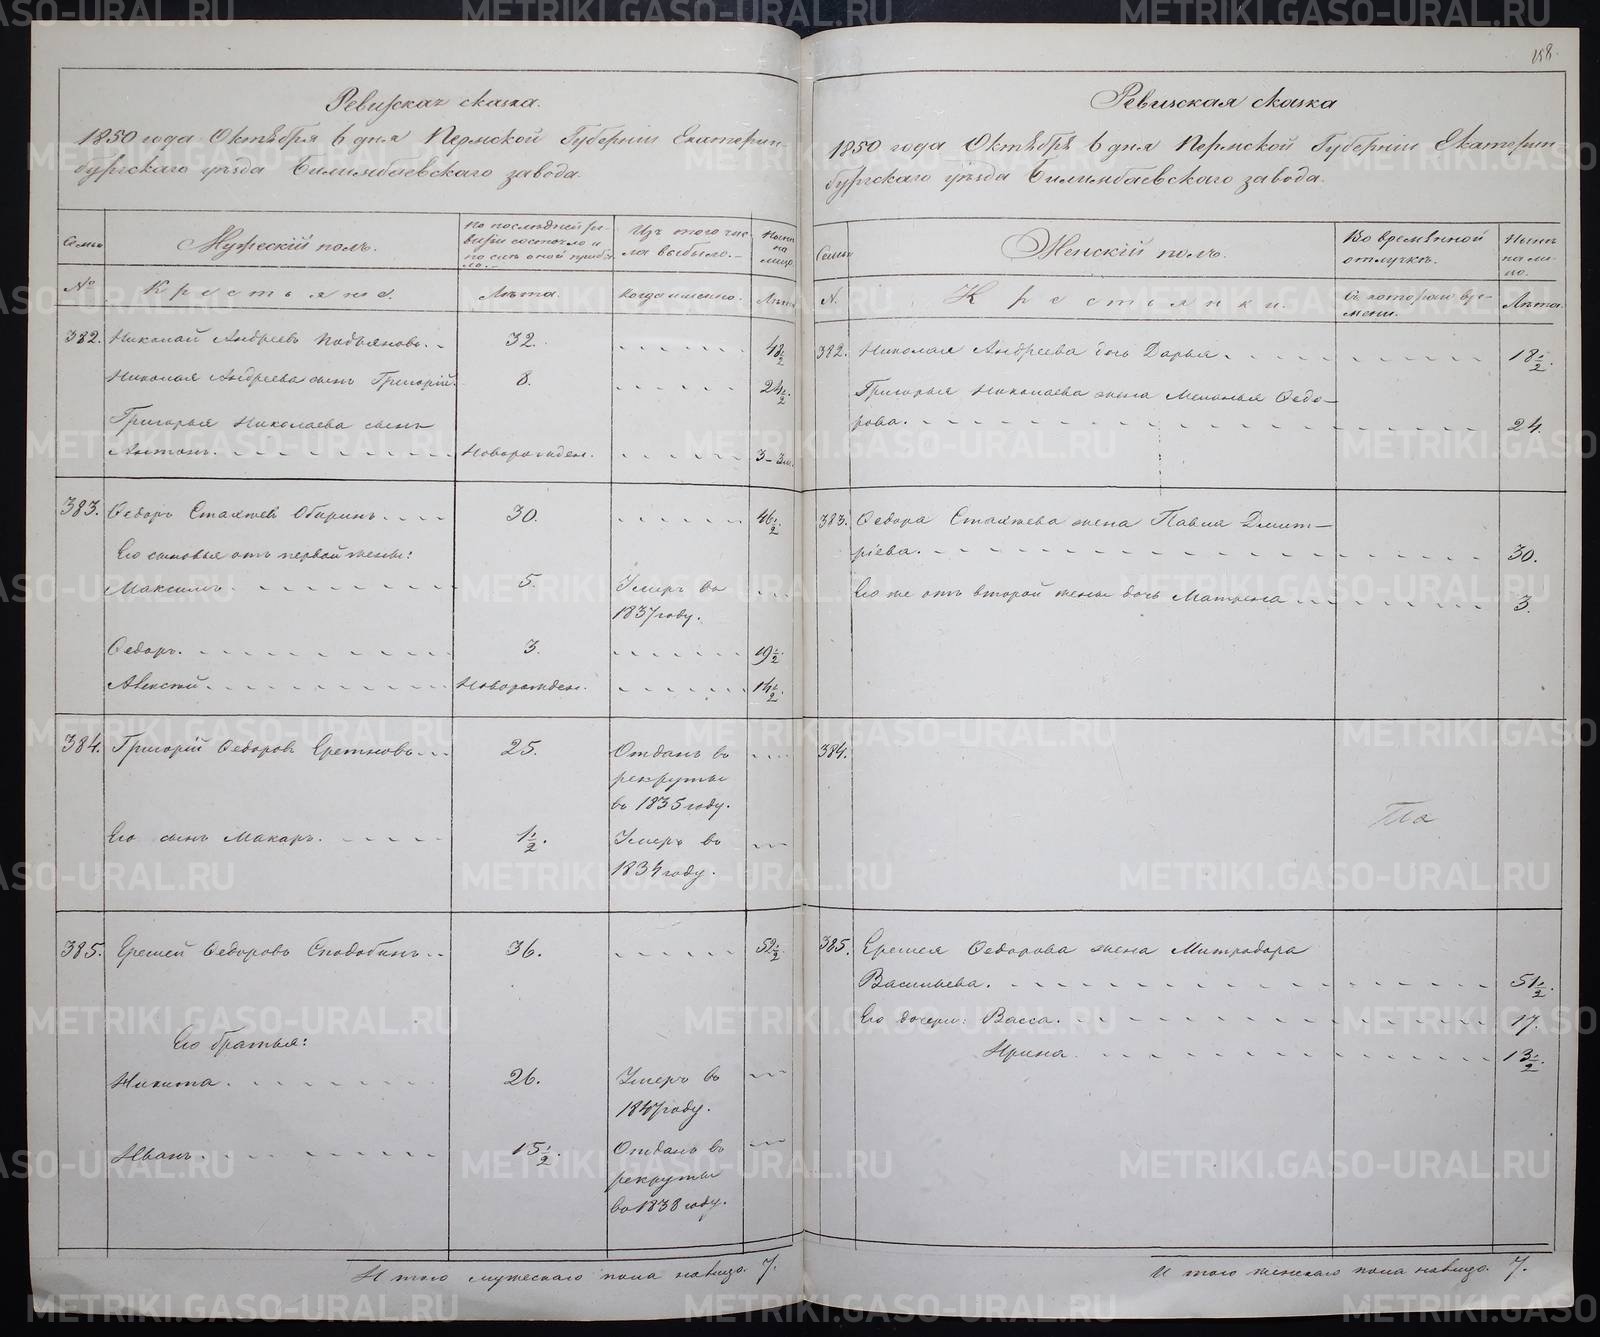 158.
Ревизская сказка.
1850 года Октября 6 дня Пермской Губерніи Екатерин-
бургскаго уѣзда Билимбаевскаго завода.
Семьи
Мужескій полъ.
По послѣдней ре-
визіи состояло и
послѣ оной прибы-
ло.
Изъ того чис-
ла выбыло.
Нынѣ
на
лицо.
№
Крестьяне.
Лѣта.
Когда именно.
Лѣта
382. Николай Андреевъ 32. 48½
Николая Андреева сынъ Григорій. 8. 24½.
Григорья Николаева сынъ
Антонъ. Новорожден. 3-3м.
383. Ѳедоръ Обаринъ. 30. 46½
Его сыновья отъ первой жены:
Максимъ. 5. Умеръ въ
1837 году.
Ѳедоръ. 3. 19½.
Алексѣй. Новорожден. 14½.
384. Григорій Ѳедоровъ 25. Отданъ въ
рекруты
въ 1835 году.
Его сынъ Макаръ. 1½. Умеръ въ
1834 году.
385. Еремей Ѳедоровъ Сподобинъ 36. 52½
Его братья:
Никита. 26. Умеръ въ
1847 году.
Иванъ. 15½. Отданъ въ
рекруты
въ 1838 году.
Итого мужескаго пола налицо. 7.
Ревизская сказка
1850 года Октября 6 дня Пермской Губерніи Екатерин-
бургскаго уѣзда Билимбаевскаго завода.
Семьи
Женскій полъ.
Во временной
отлучкѣ.
Нынѣ
на ли-
цо.
№.
Крестьянки.
Съ котораго вре-
мени.
Лѣта.
382. Николая Андреева дочь Дарья. 18½.
Григорья Николаева жена Меланья Ѳедо-
рова. 24.
383. Ѳедора жена Павла Дмит-
ріева. 30.
Его же отъ второй жены дочь Матрена 3.
384.
385. Еремея Ѳедорова жена Митродора
Васильева. 51½.
Его дочери: Васса. 17.
Ирина. 13½.
Итого женскаго пола налицо. 7.
METRIKI.GASO-URAL.RU